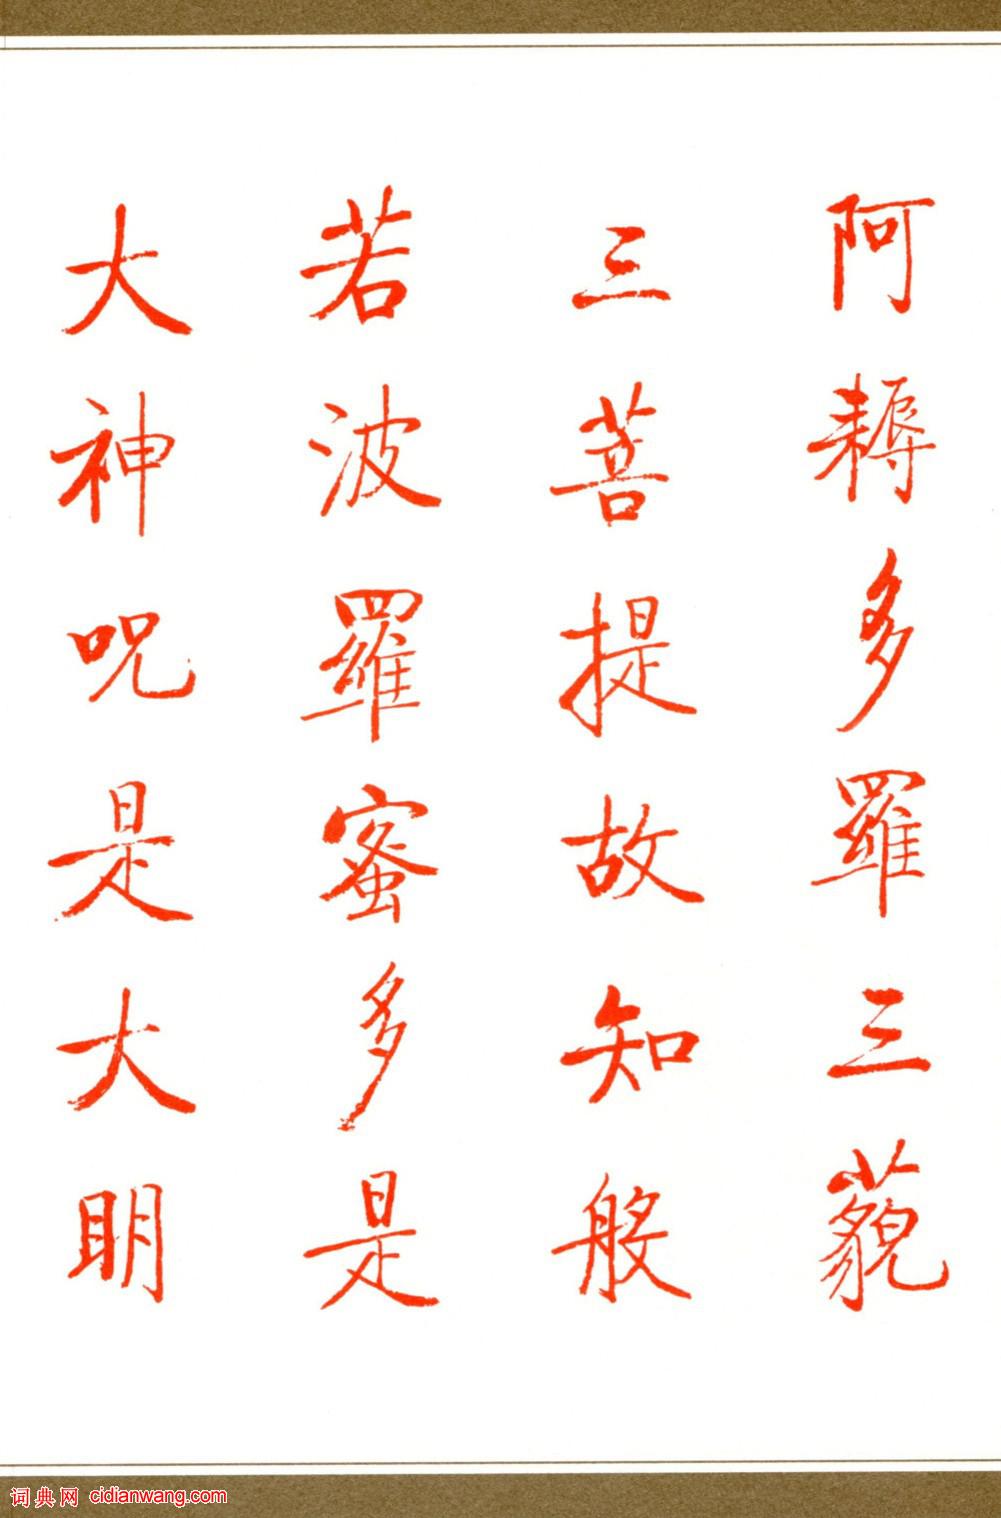 阿耨多羅三藐
三菩提故知般
若波羅蜜多是
大神呪是大明
词典网 cidianwang.com